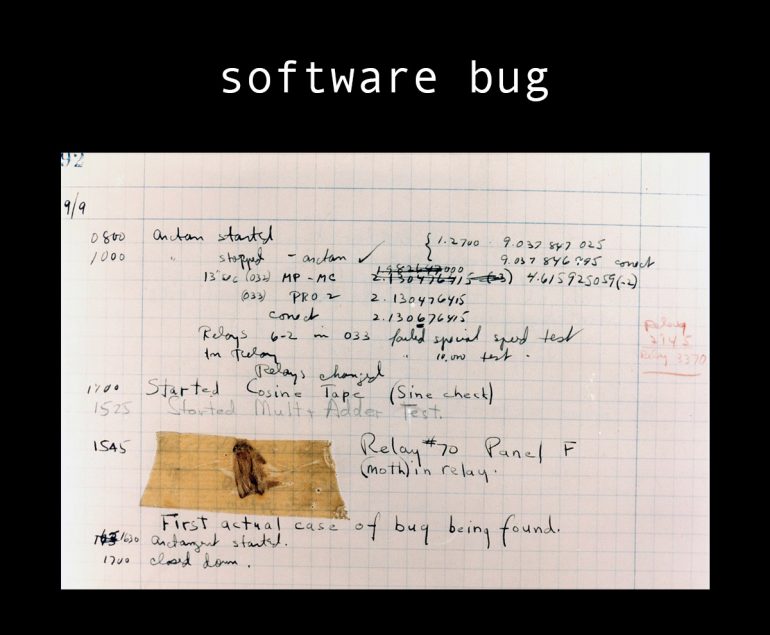 software bug
92
9/9
0800 arctan started
1000 " stopped - arctan ✓
{ 1.2700 9.037 847 025
9.037 846 995 correct
13"uc (032) MP - MC 2.130476415 (-3) 4.615925059(-2)
(033) PRO 2 2.130476415
correct 2.130676415
Relays 6-2 in 033 failed special speed test
in relay " 10,000 test .
Relays changed
Relay
2145
Relay 3370
1700 Started Cosine Tape (Sine check)
1525 Started Mult + Adder Test.
1545 Relay #70 Panel F
(moth) in relay.
First actual case of bug being found.
1630 arctangent started.
1700 closed down .